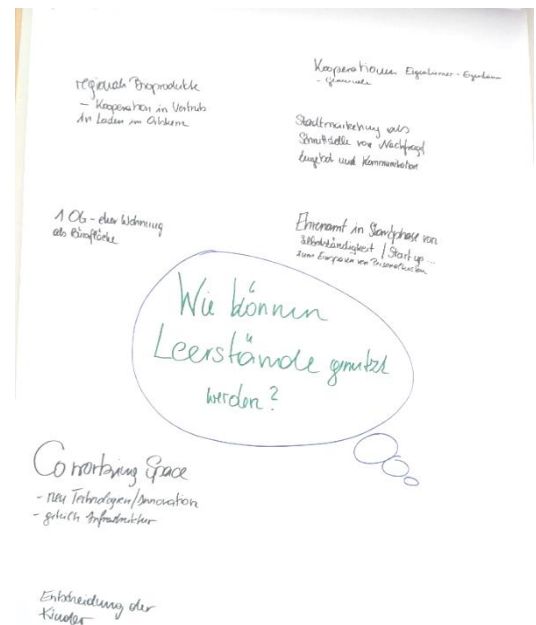 regionale Bioprodukte
- Kooperation in Vertrieb
in Laden im Ortskern
Kooperationen Eigentümer - Eigentümer
- Gemeinde
Stadtmarketing als
Schnittstelle von Nachfrage
Angebot und Kommunikation
1 OG - eher Wohnung
als Bürofläche
Ehrenamt in Startphase von
Selbständigkeit / Start up...
zum Einsparen von Personalkosten
Wie können
Leerstände genutzt
werden?
Coworking Space
- neue Technologien/Innovation
- geteilte Infrastruktur
Entscheidung der
Kinder